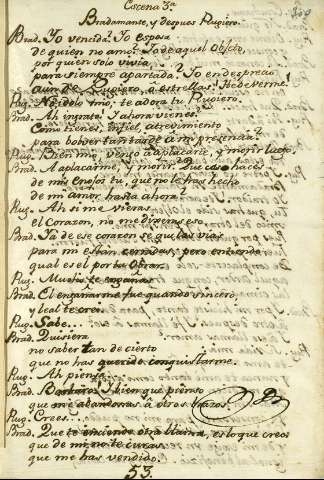 Escena 3ª
Bradamante, y despues Rugiero.
Brad. Yo vencida? Yo esposa
de quien no amo? Yo de aquel objeto,
por quien solo vivia
para siempre apartada? Yo en desprecio
aun de Rugiero, ò estrellas! He de verme!
Rug. No idolo mio, te adora tu Rugiero.
Brad. Ah ingrato! Y ahora vienes?
Como tienes, infiel, atrevimiento
para bolver tan tarde à mi presencia?
Rug. Bien mio, vengo à aplacarte, y morir luego.
Brad. A aplacarme, y morir? Que caso haces
de mis enojos tu, que no le has hecho
de mi amor hasta ahora?
Rug. Ah si me vieras
el corazon, no me dixeras eso.
Brad. Tu de ese corazon se que las vias
para mi estàn cerradas; pero entiendo
qual es el por tu obrar.
Rug. Mucho te engañas
Brad. El engañarme fue quando sincero,
y leal te crei.
Rug. Sabe...
Brad. Quisiera
no saber tan de cierto
que no has querido conquistarme.
Rug. Ah piensa
Brad. Y bien que pienso
que me abandonas à otros lazos.
Rug. Crees....
Brad. Que te enciende otra llama, es lo que creo
que de mi no te curas
que me has vendido.
53.